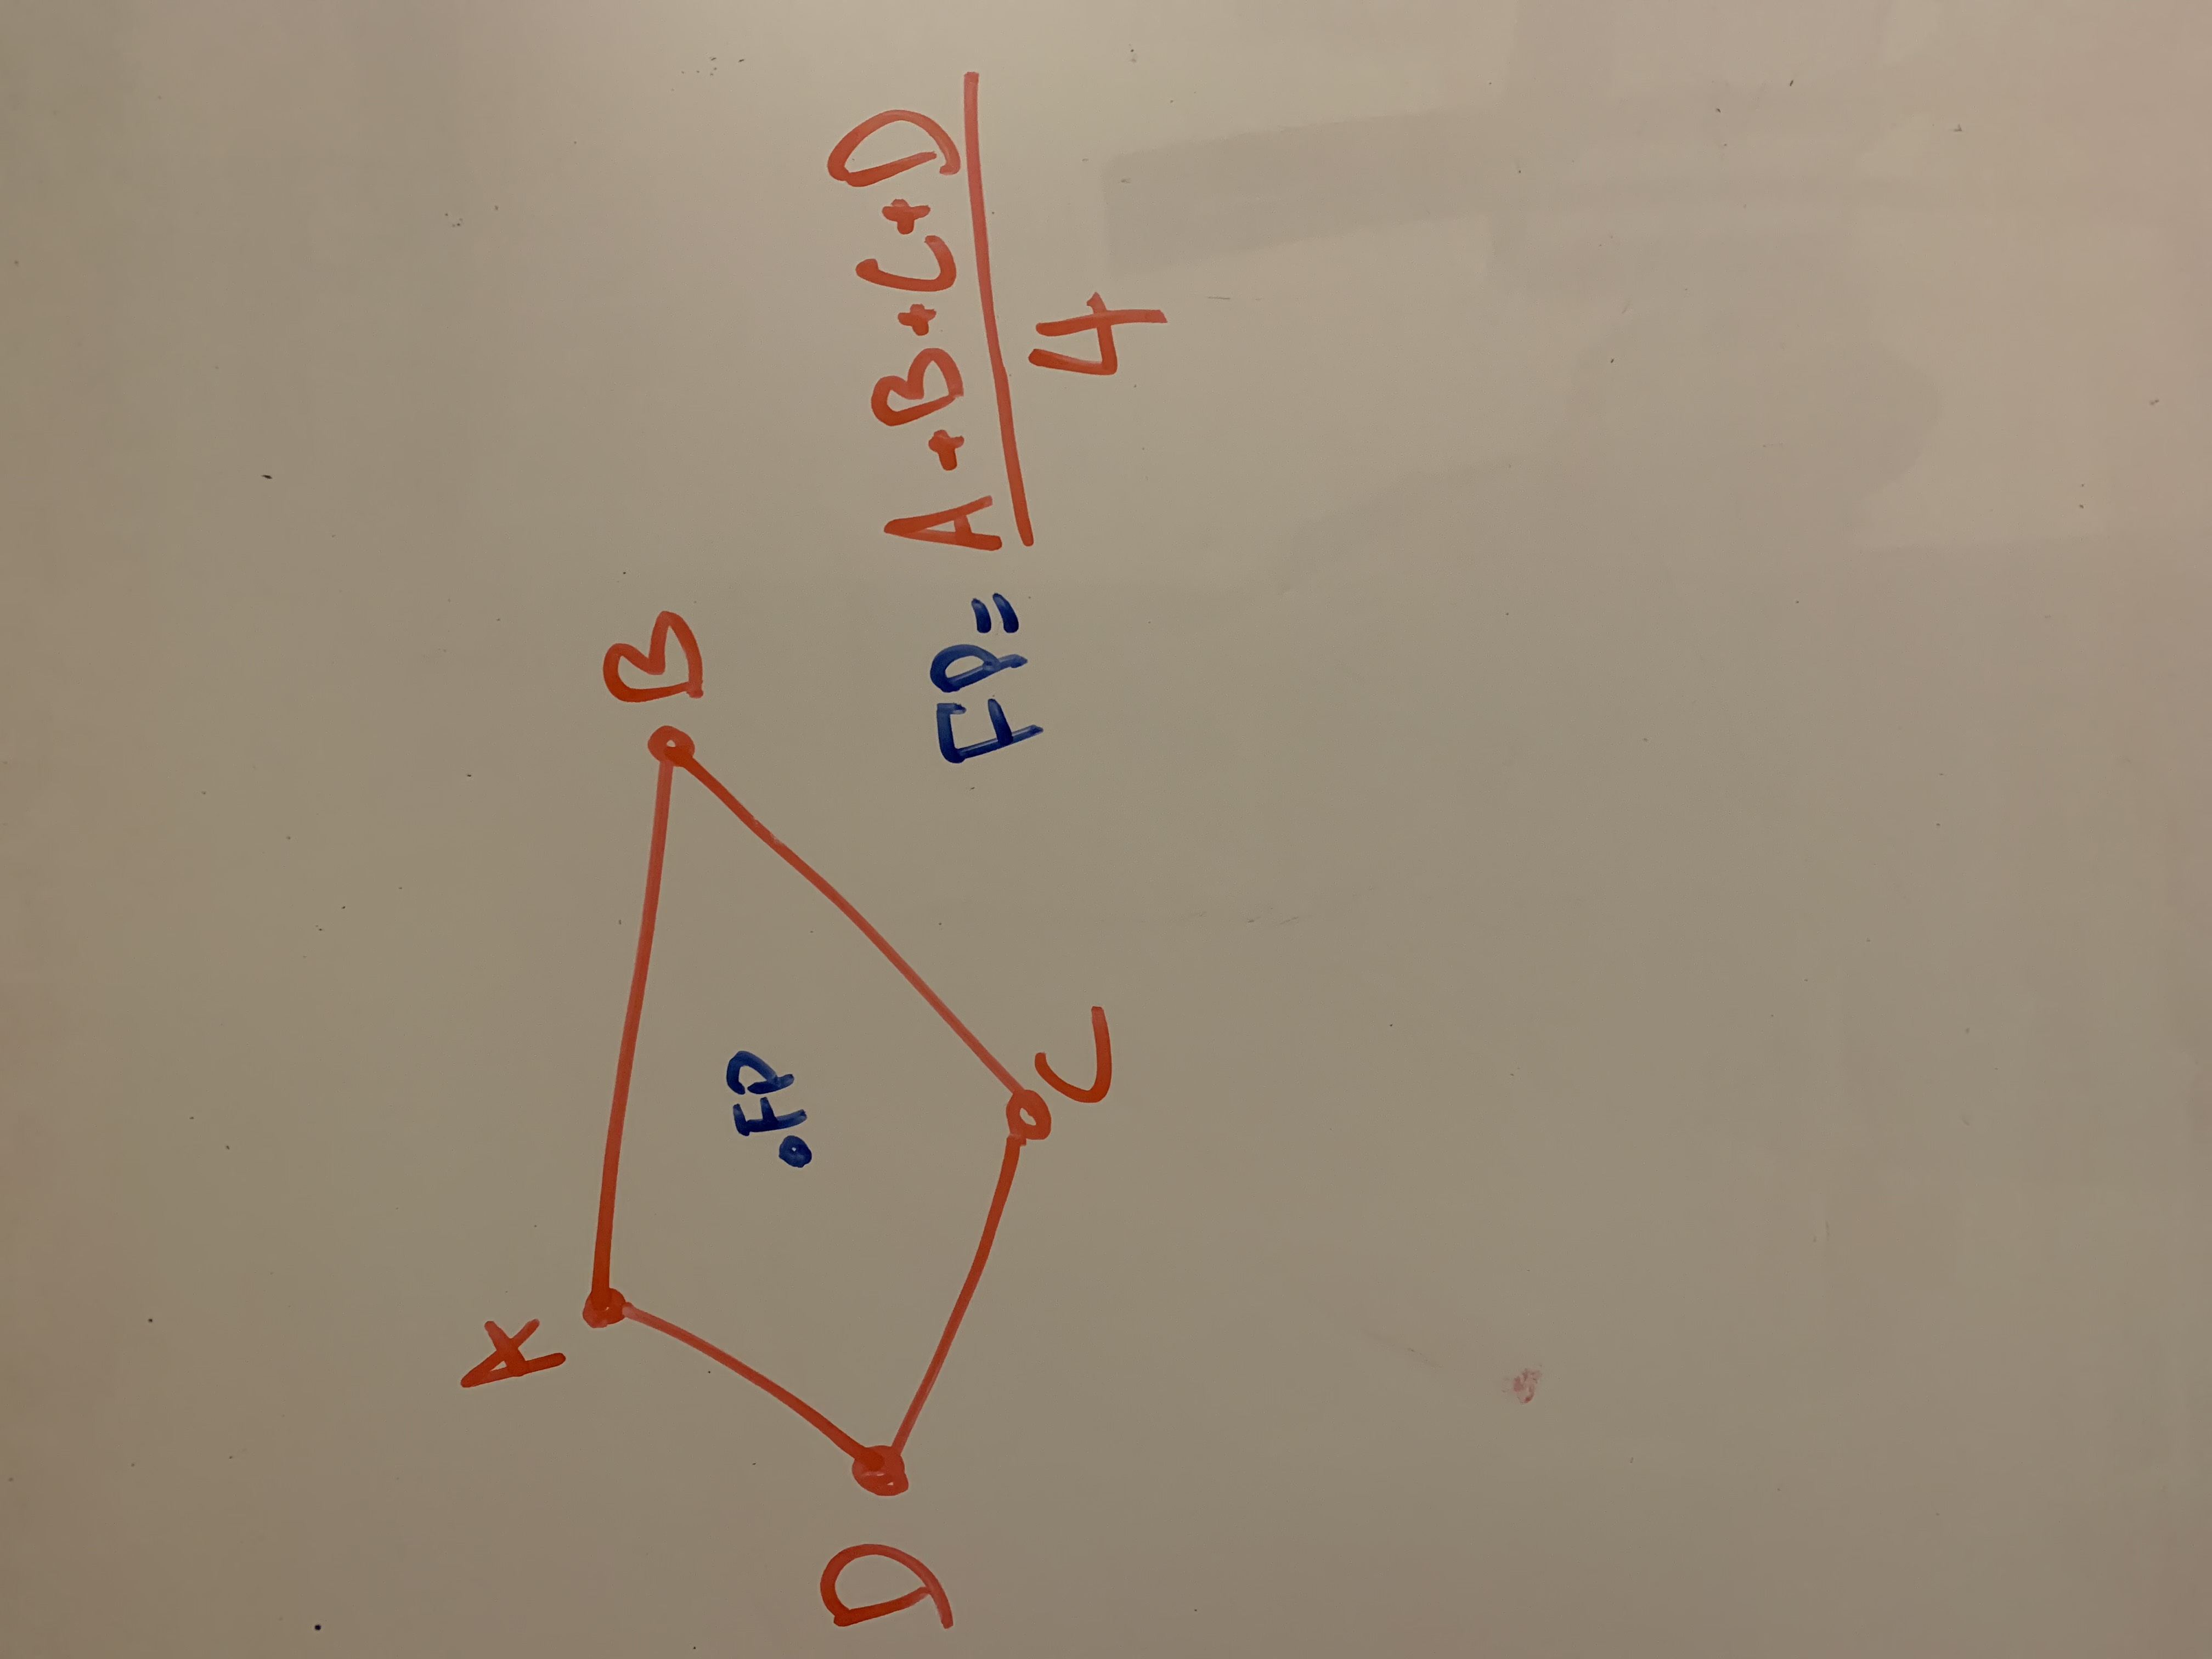 A
B
FP
D
C
FP = A+B+C+D
4